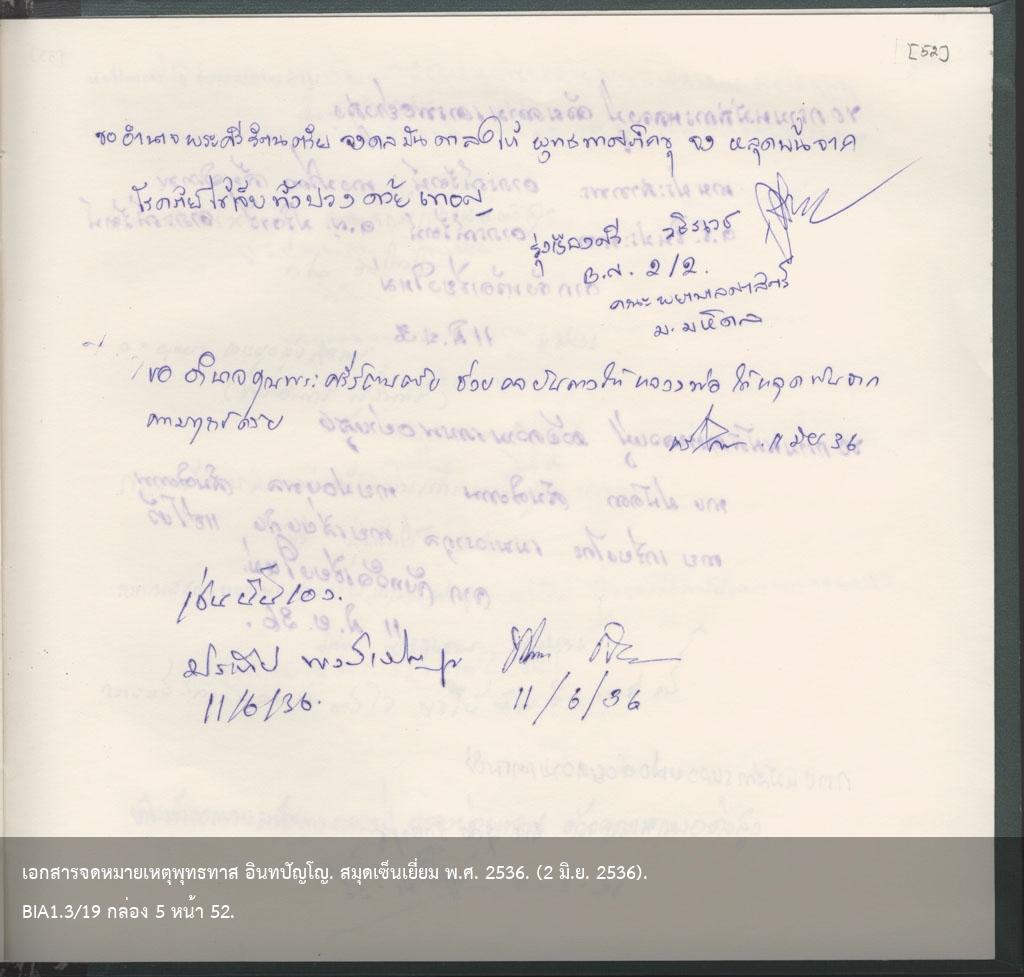 [52]
ขออำนาจพระศรีรัตนตรัย จงดลบันดาลให้ พุทธทาสภิกขุ จง หลุดพ้นจาก
โรคภัยไข้เจ็บ ทั้งปวง ด้วย เทอญ
รุ่งเรืองศรี
2/2.
คณะพยาบาลศาสตร์
ม. มหิดล
ขอ อำนาจคุณพระศรีรัตนตรัย ช่วย ดลบันดาลให้ หลวงพ่อ ได้หลุดพ้นจาก
ความทุกข์ด้วย
11 มิย 36
เช่นนั้นเอง.
ประทีป
11/6/36.
11/6/36
เอกสารจดหมายเหตุพุทธทาส อินทปัญโญ. สมุดเซ็นเยี่ยม พ.ศ. 2536. (2 มิ.ย. 2536).
BIA1.3/19 กล่อง 5 หน้า 52.